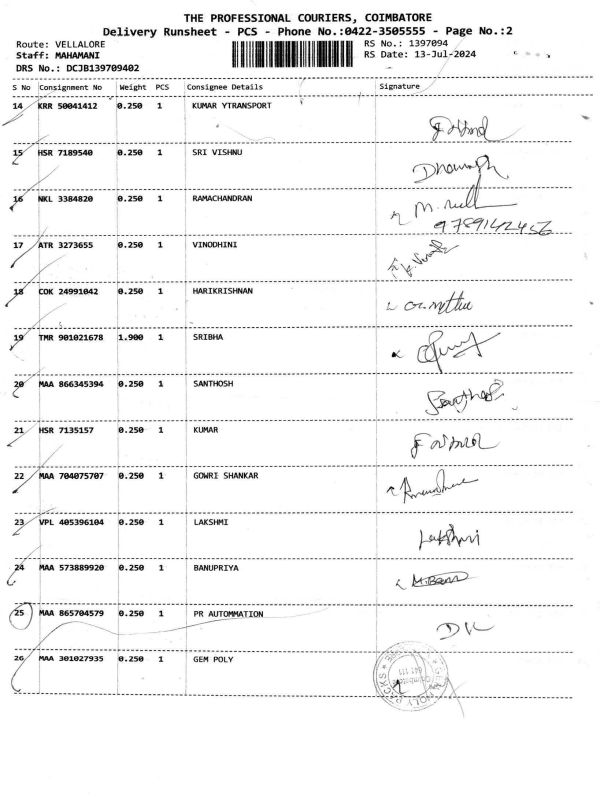 THE PROFESSIONAL COURIERS, COIMBATORE
Delivery Runsheet - PCS - Phone No.:0422-3505555 - Page No.:2
Route: VELLALORE RS No.: 1397094
Staff: MAHAMANI RS Date: 13-Jul-2024
DRS No.: DCJB139709402
S No Consignment No Weight PCS Consignee Details Signature
14 KRR 50041412 0.250 1 KUMAR YTRANSPORT
15 HSR 7189540 0.250 1 SRI VISHNU
16 NKL 3384820 0.250 1 RAMACHANDRAN
9789142456
17 ATR 3273655 0.250 1 VINODHINI
18 COK 24991042 0.250 1 HARIKRISHNAN
19 TMR 901021678 1.900 1 SRIBHA
20 MAA 866345394 0.250 1 SANTHOSH Santhosh
21 HSR 7135157 0.250 1 KUMAR
22 MAA 704075707 0.250 1 GOWRI SHANKAR
23 VPL 405396104 0.250 1 LAKSHMI Lakshmi
24 MAA 573889920 0.250 1 BANUPRIYA
25 MAA 865704579 0.250 1 PR AUTOMMATION
26 MAA 301027935 0.250 1 GEM POLY